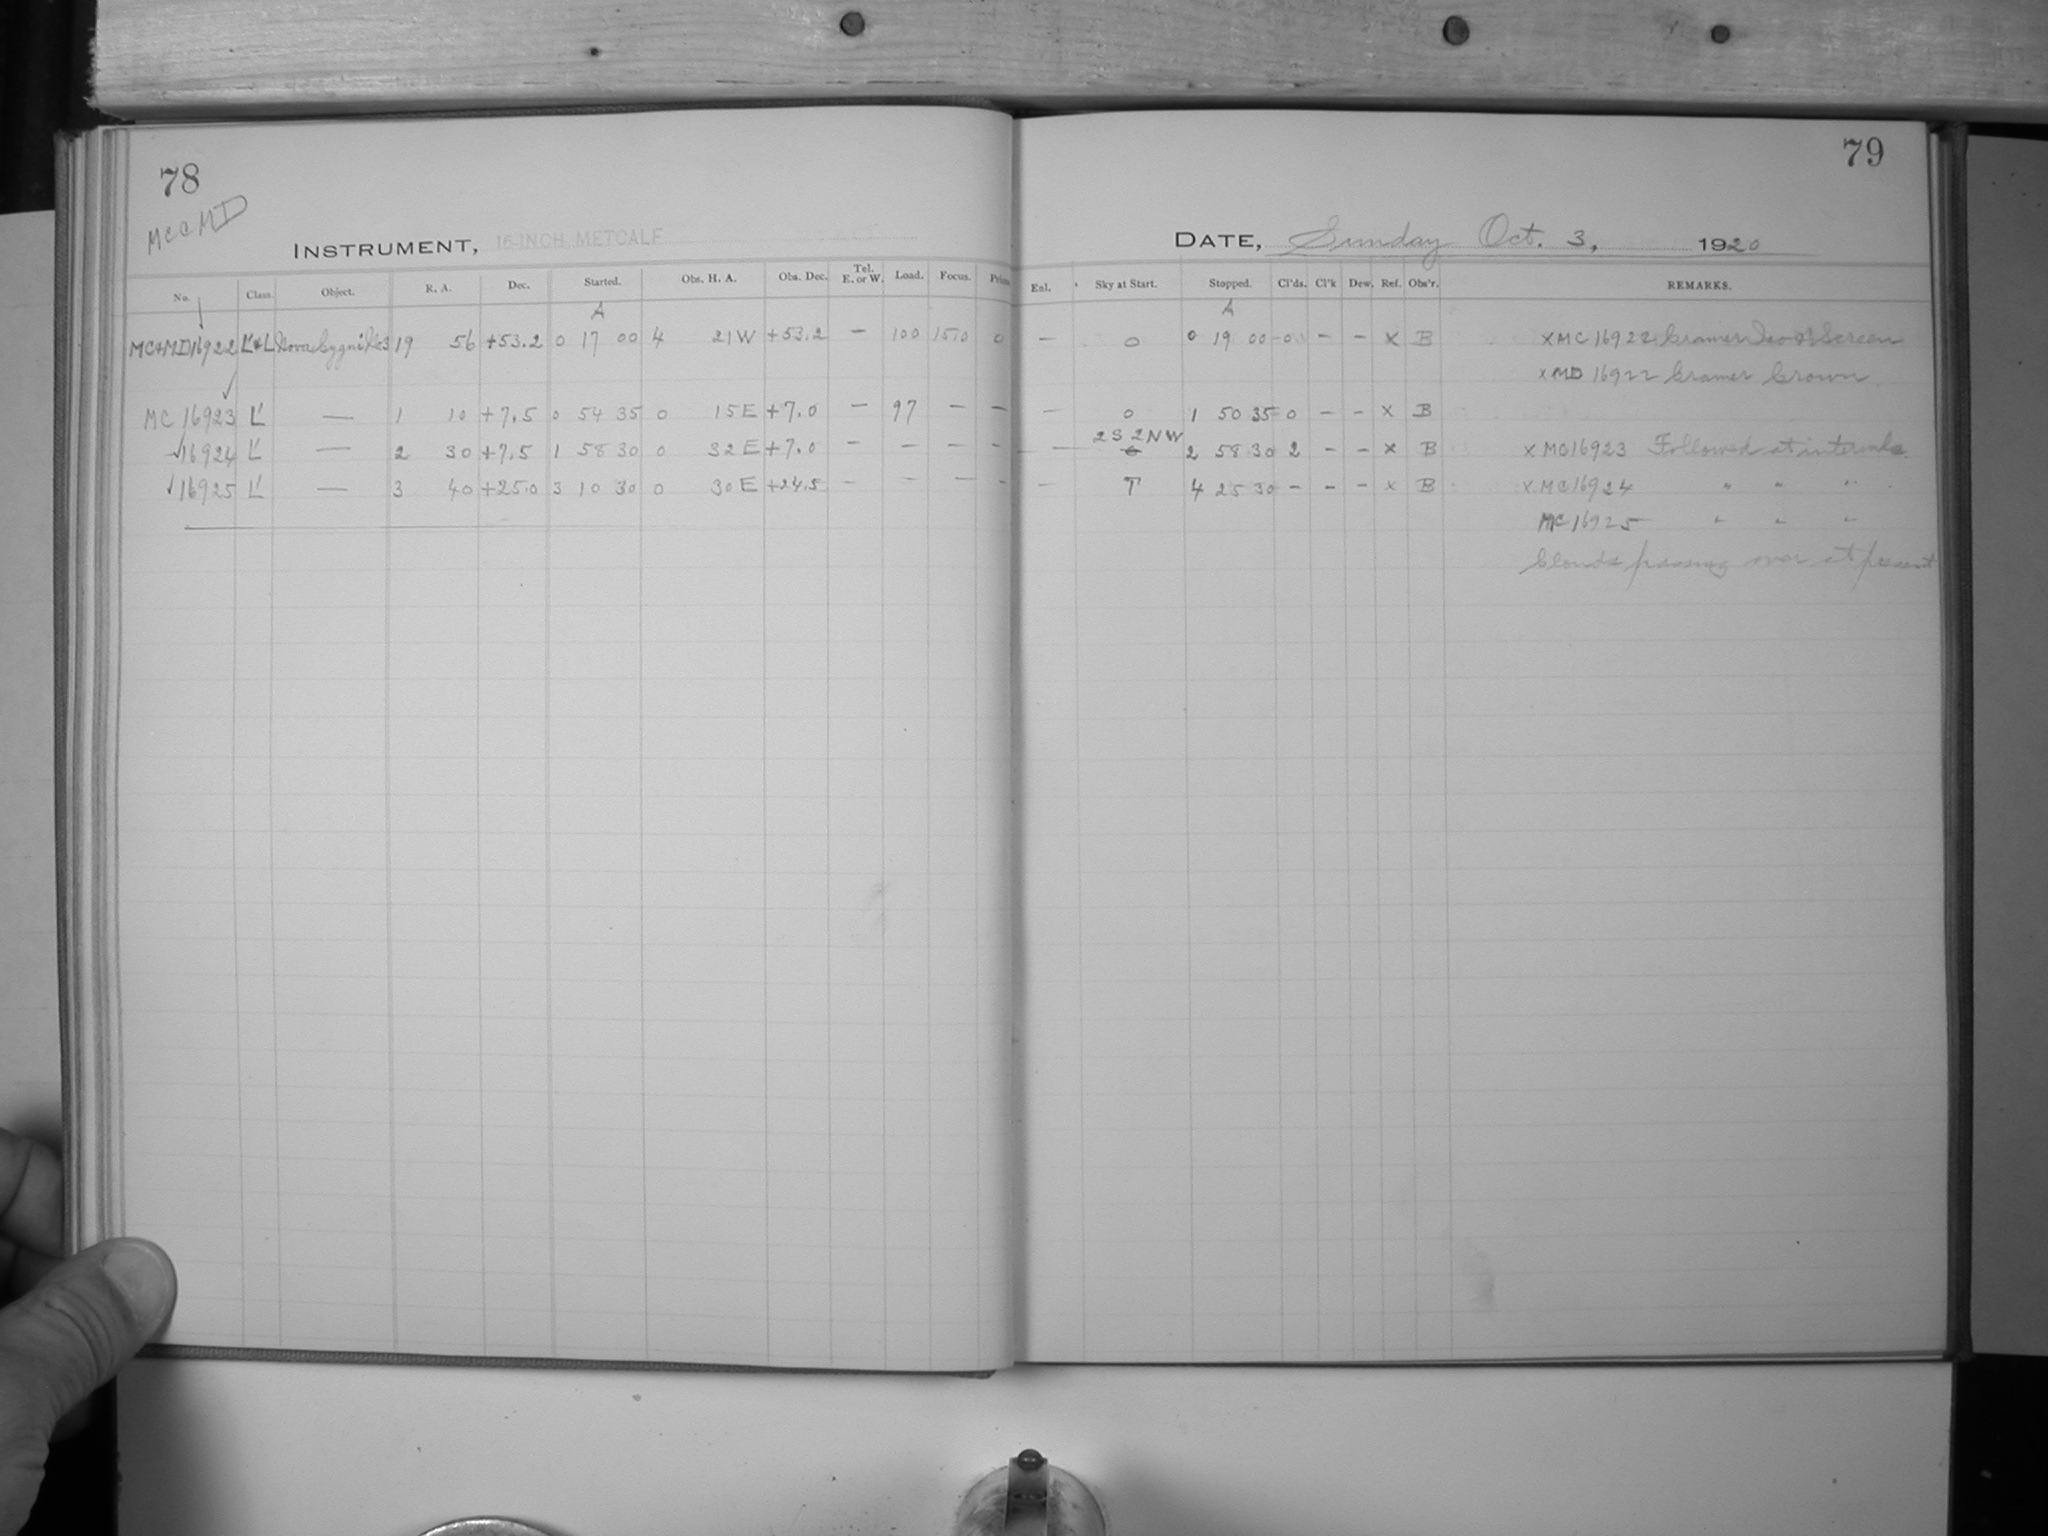 78
MC & MD
INSTRUMENT, 16-INCH METCALF
No. Class. Object. R. A. Dec. Started. Obs. H. A. Obs. Dec. Tel. E. or W. Load. Focus. Prism
A
MC&MD16922 L'&L Nova Cygni No3 19 56 +53.2 0 17 00 4 21W +53.2 — 100 15.0 0
MC 16923 L' — 1 10 +7.5 0 54 35 0 15E +7.0 — 97 — —
16924 L' — 2 30 +7.5 1 58 30 0 32E +7.0 — — — —
16925 L' — 3 40 +25.0 3 10 30 0 30E +24.5 — — — —
79
DATE, Sunday Oct. 3, 1920
Enl. Sky at Start. Stopped. Cl'ds. Cl'k Dew. Ref. Obs'r. REMARKS.
A
— 0 0 19 00 0 — — x B x MC 16922 Cramer Iso & Screen
x MD 16922 Cramer Crown
— 0 1 50 35 0 — — x B
— 2S 2NW 2 58 30 2 — — x B x MC16923 Followed at intervals.
— T 4 25 30 — — — x B x MC16924 " " "
MC 16925 " " "
Clouds passing over at present